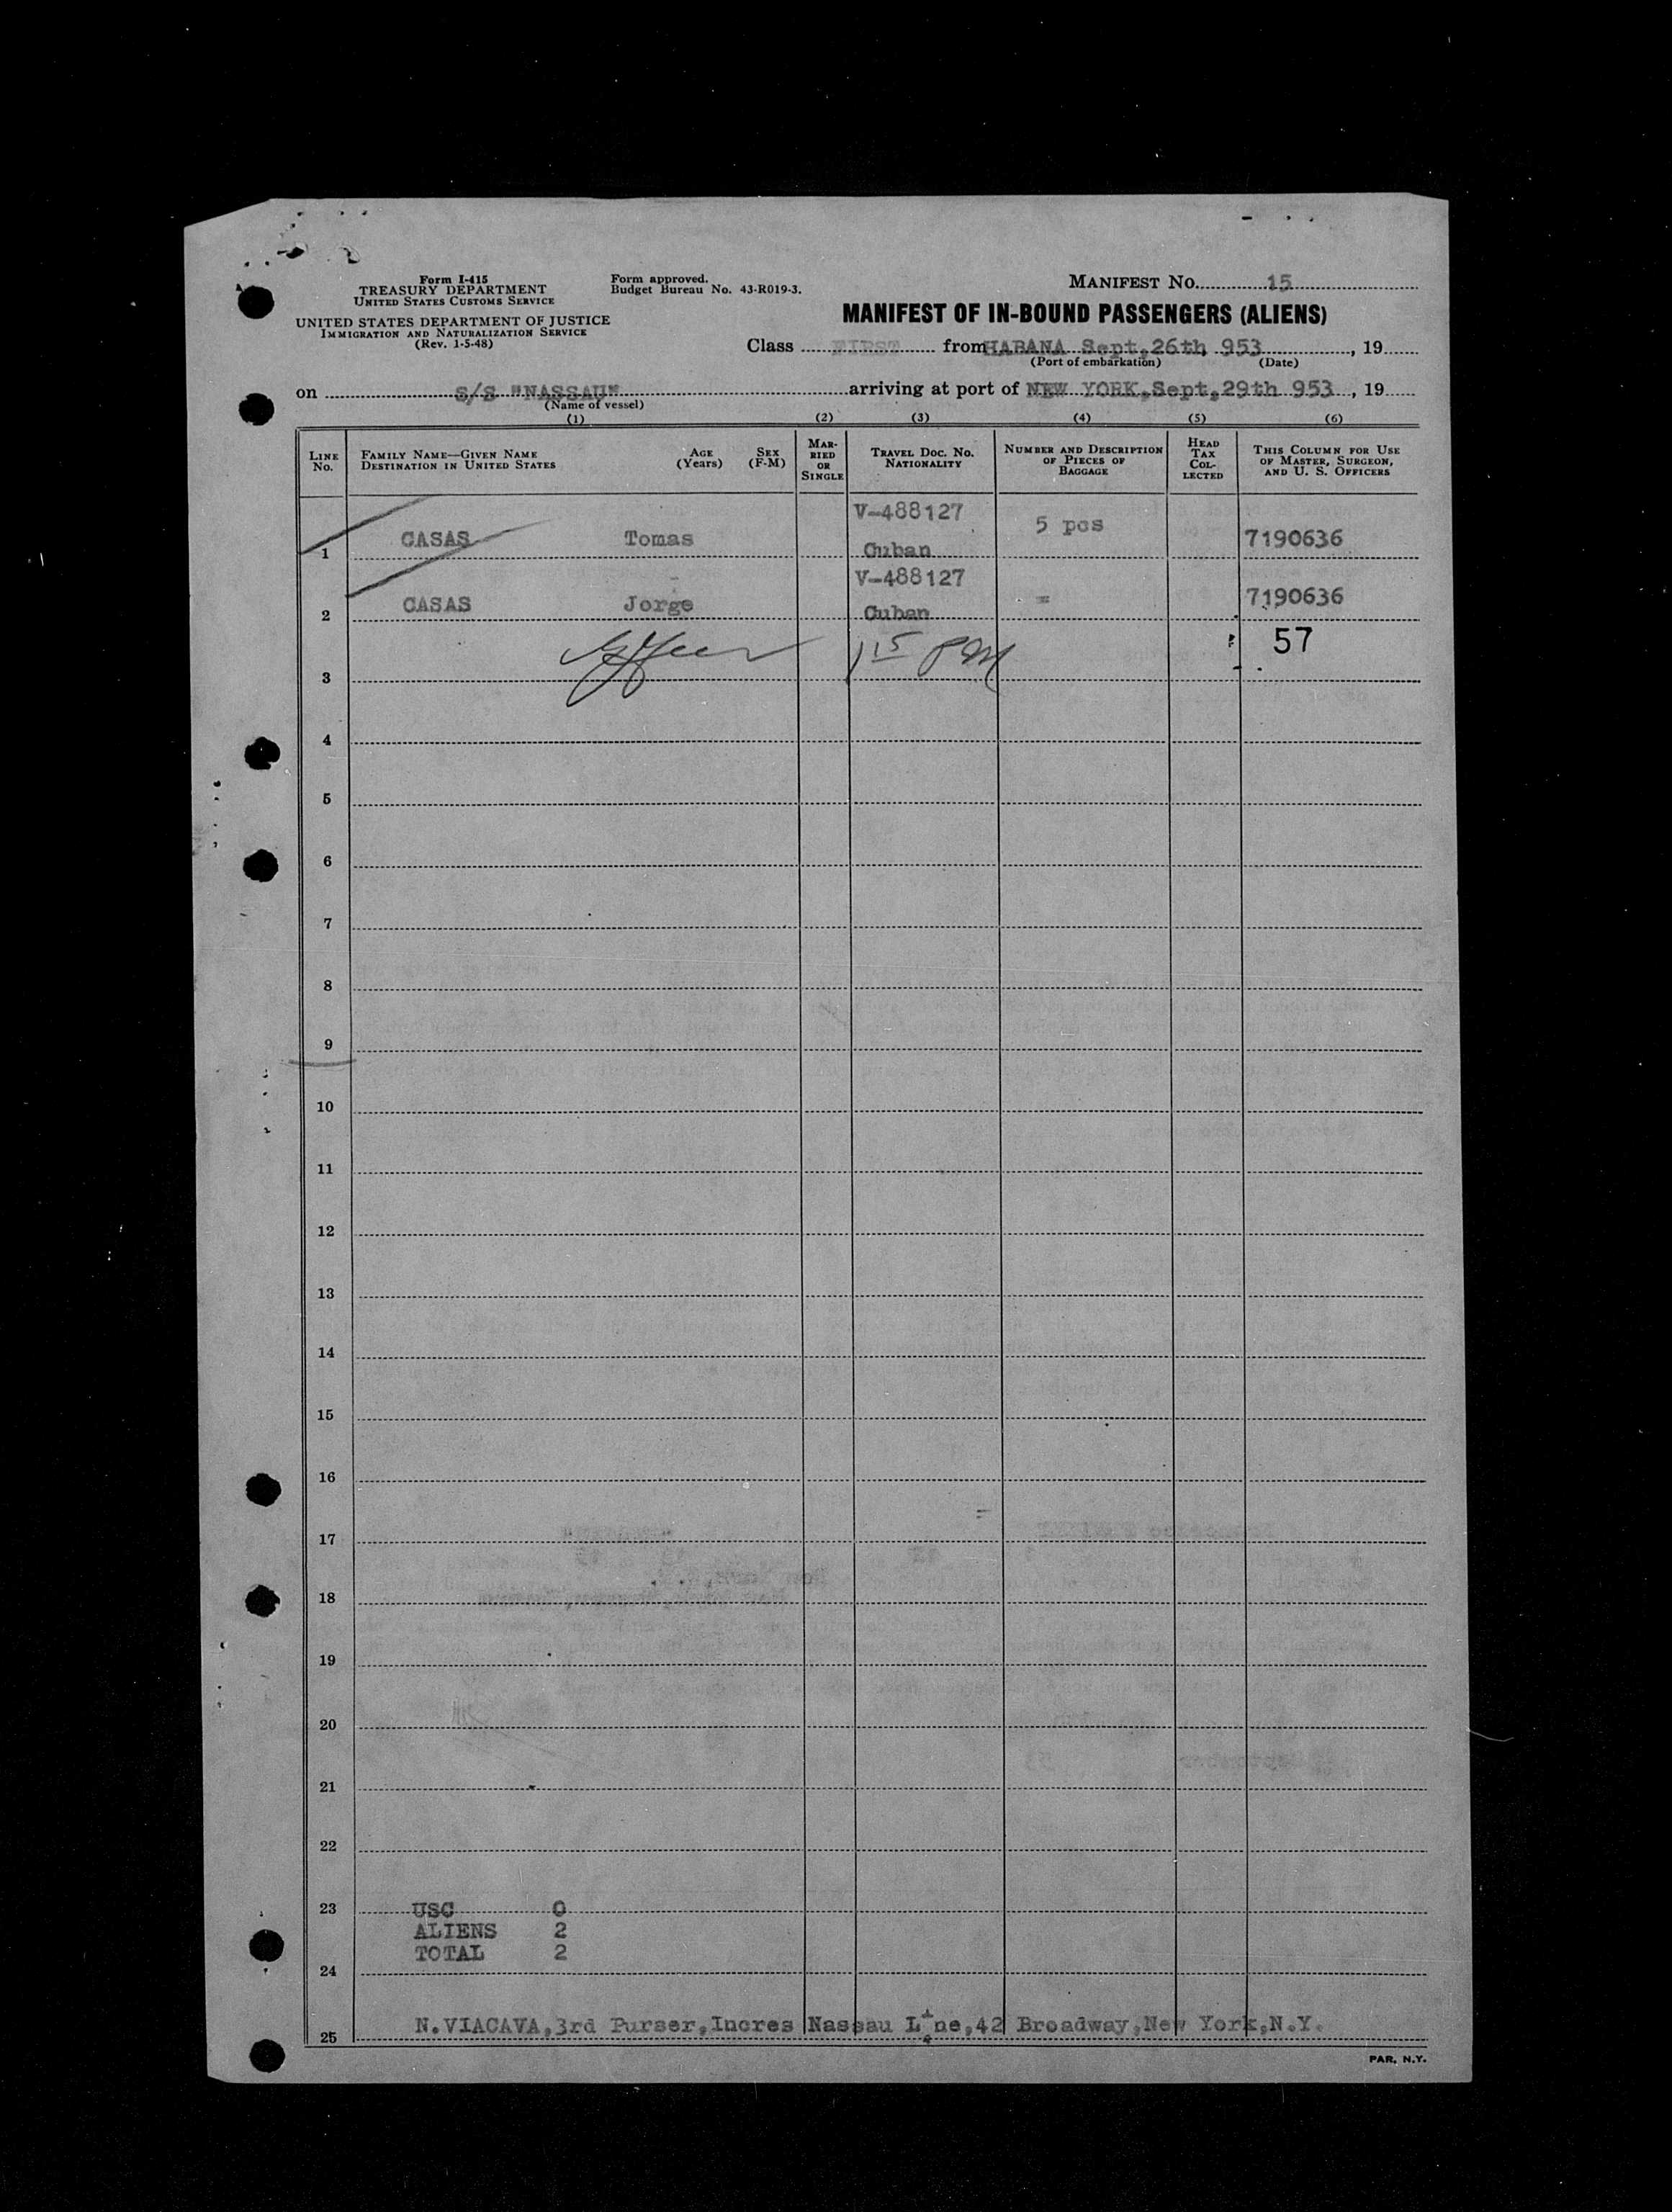 Form I-415
TREASURY DEPARTMENT
UNITED STATES CUSTOMS SERVICE
UNITED STATES DEPARTMENT OF JUSTICE
IMMIGRATION AND NATURALIZATION SERVICE
(Rev. 1-5-48)
Form approved.
Budget Bureau No. 43-R019-3.
MANIFEST No. 15
MANIFEST OF IN-BOUND PASSENGERS (ALIENS)
Class FIRST from HABANA Sept,26th 953, 19
(Port of embarkation) (Date)
on S/S "NASSAU" arriving at port of NEW YORK,Sept,29th 953, 19
(Name of vessel)
(1) (2) (3) (4) (5) (6)
LINE No. FAMILY NAME—GIVEN NAME DESTINATION IN UNITED STATES AGE (Years) SEX (F-M) MARRIED OR SINGLE TRAVEL DOC. NO. NATIONALITY NUMBER AND DESCRIPTION OF PIECES OF BAGGAGE HEAD TAX COLLECTED THIS COLUMN FOR USE OF MASTER, SURGEON, AND U. S. OFFICERS
V-488127
1 CASAS Tomas Cuban 5 pcs 7190636
V-488127
2 CASAS Jorge Cuban = 7190636
115 PM 57
3
4
5
6
7
8
9
10
11
12
13
14
15
16
17
18
19
20
21
22
23 USC 0
ALIENS 2
TOTAL 2
24
25 N.VIACAVA,3rd Purser,Incres Nassau Line,42 Broadway,New York,N.Y.
PAR, N.Y.